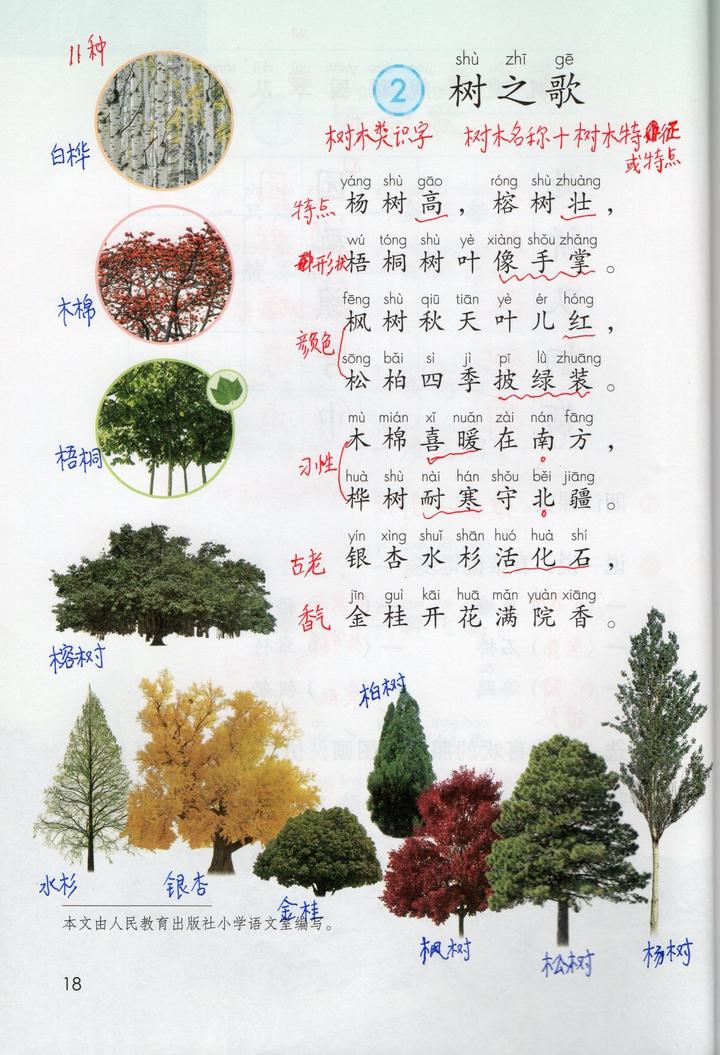 11种
shù zhī gē
2 树之歌
树木类识字 树木名称+树木特征
或特点
白桦
yáng shù gāo róng shù zhuàng
特点 杨树高，榕树壮，
wú tóng shù yè xiàng shǒu zhǎng
形状 梧桐树叶像手掌。
木棉
fēng shù qiū tiān yè ér hóng
枫树秋天叶儿红，
颜色
sōng bǎi sì jì pī lǜ zhuāng
松柏四季披绿装。
梧桐
mù mián xǐ nuǎn zài nán fāng
木棉喜暖在南方，
习性
huà shù nài hán shǒu běi jiāng
桦树耐寒守北疆。
yín xìng shuǐ shān huó huà shí
古老 银杏水杉活化石，
jīn guì kāi huā mǎn yuàn xiāng
香气 金桂开花满院香。
榕树
柏树
水杉
银杏
金桂
枫树
松树
杨树
本文由人民教育出版社小学语文室编写。
18